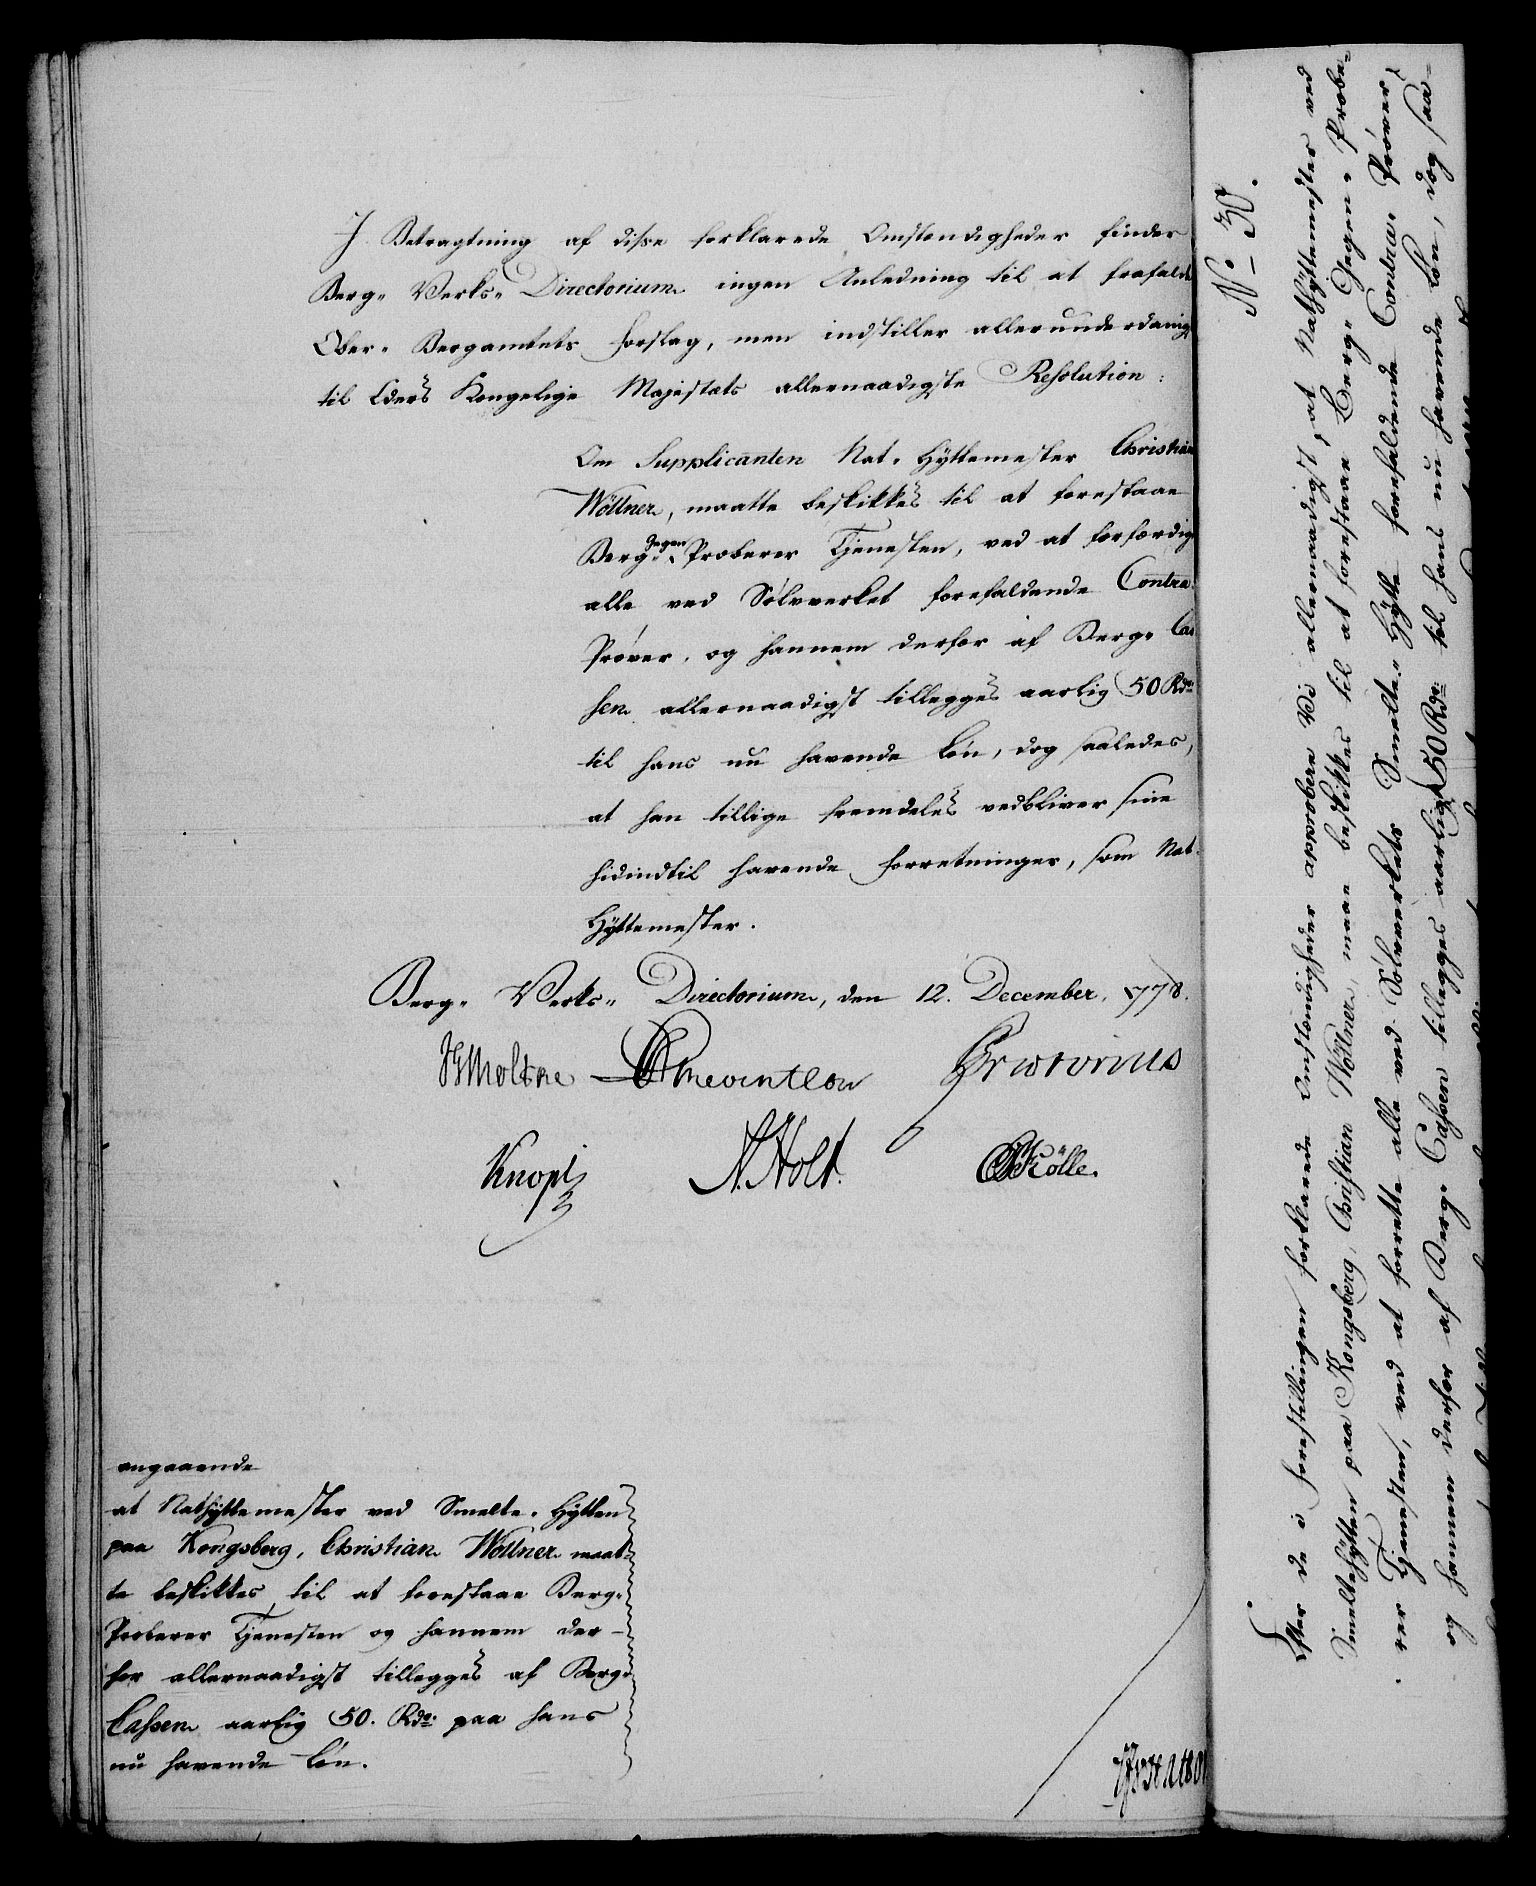 I Betragtning af disse forklarede Omstændigheder finder
Berg- Verks- Directorium ingen Anledning til at frafalde
Ober- Bergamtets Forslag, men indstiller allerunderdanigst
til Eders Kongelige Majestæts allernaadigste Resolution:
Om Supplicanten Nat- Hÿttemester Christian
Wöllner, maatte beskikkes til at forestaae
Berg- Gegen Proberer Tjenesten, ved at forfærdige
alle ved Sølvverket forefaldende Contra
Prøver, og hannem derfor af Berg- Cas
sen allernaadigst tillegges aarlig 50 Rdr
til hans nu havende Løn, dog saaledes,
at han tillige fremdeles vedbliver sine
hidindtil havende Forretninger, som Nat-
Hÿttemester.
Berg- Verks- Directorium, den 12. December, 1778.
Moltke Reventlow Prætorius
Knopf N. Holt. Kölle.
angaaende
at Nathÿttemester ved Smelte- Hÿtten
paa Kongsberg, Christian Wöllner maat-
te beskikkes til at forestaae Berg-
Proberer Tjenesten og hannem der-
for allernaadigst tillegges af Berg-
Cassen aarlig 50. Rdr paa hans
nu havende Løn.
No 30.
Efter de i Forestillingen forklarede Omstændigheder approbere Vi allernaadigst, at Nathÿttemester ved
Smeltehÿtten paa Kongsberg, Christian Wöllner, maae beskikkes til at forestaae Berg- Gegen- Probe-
rer Tjenesten, ved at forrette alle ved Sølvverkets Smelte- Hÿtte forefaldende Contra- Prøver,
og hannem derfor af Berg- Cassen tillegges aarlig 50 Rdr til hans nu havende Løn, dog saa-